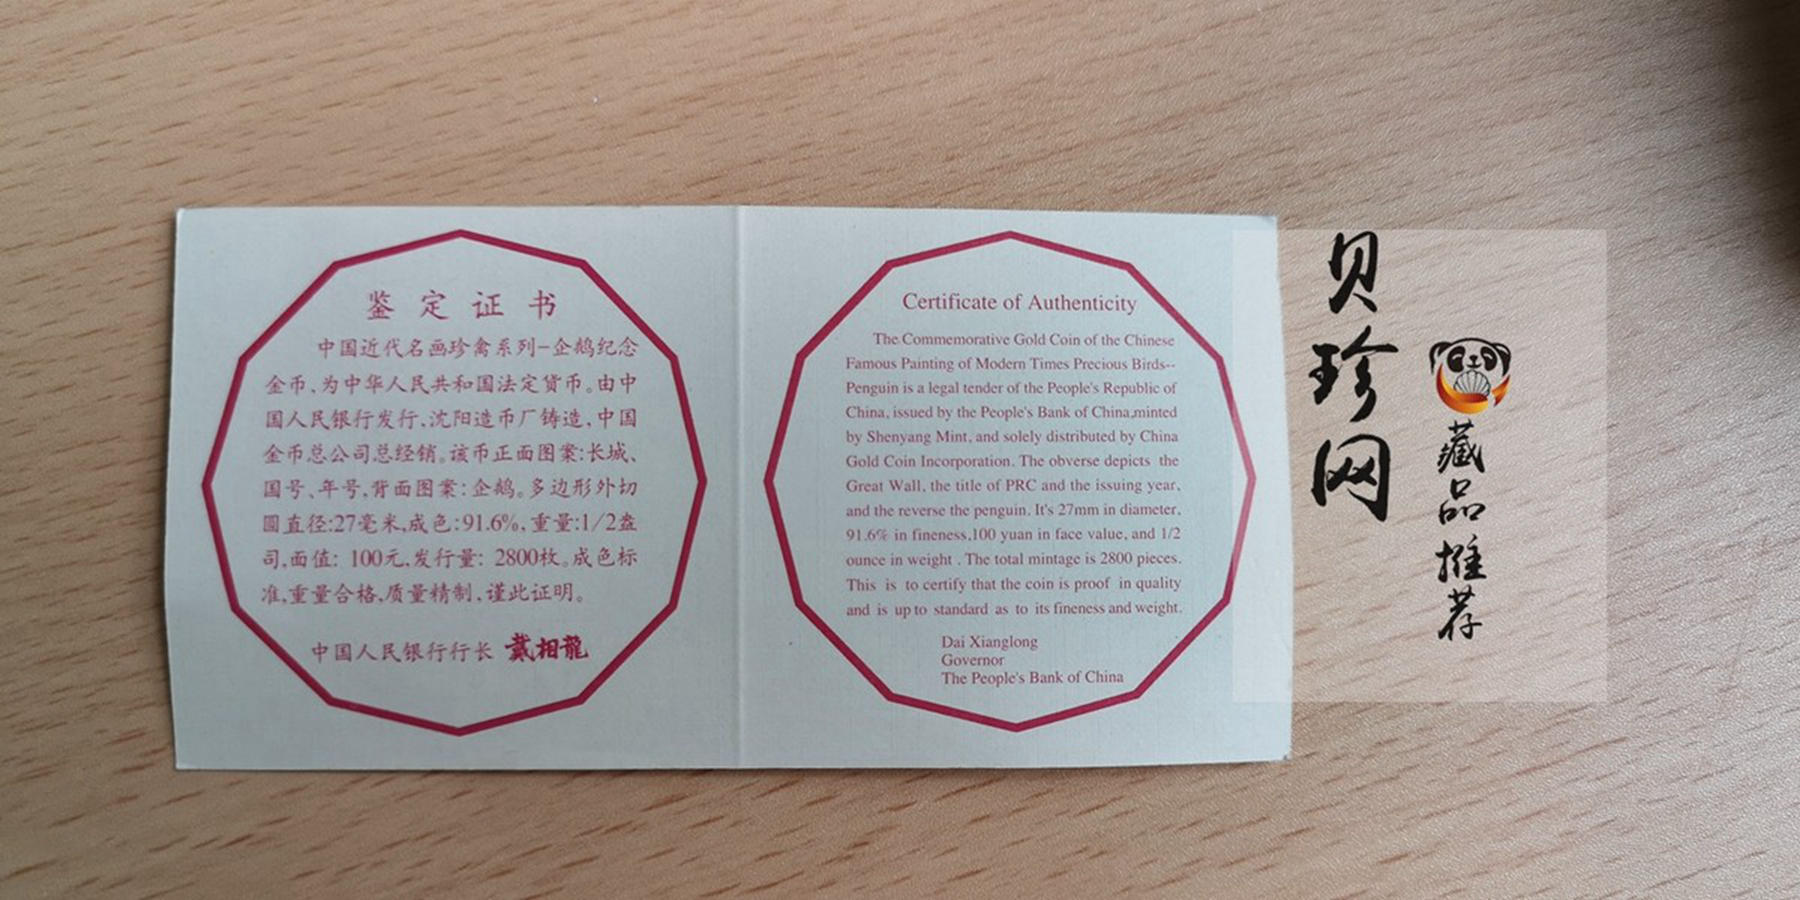 鉴定证书
中国近代名画珍禽系列-企鹅纪念
金币、为中华人民共和国法定货币。由中
国人民银行发行、沈阳造币厂铸造,中国
金币总公司总经销。该币正面图案:长城、
国号、年号,背面图案:企鹅。多边形外切
圆直径:27毫米,成色:91.6%,重量:1/2盎
司,面值: 100元,发行量: 2800枚。成色标
准,重量合格,质量精制,谨此证明。
中国人民银行行长 戴相龍
Certificate of Authenticity
The Commemorative Gold Coin of the Chinese
Famous Painting of Modern Times Precious Birds--
Penguin is a legal tender of the People's Republic of
China, issued by the People's Bank of China,minted
by Shenyang Mint, and solely distributed by China
Gold Coin Incorporation. The obverse depicts the
Great Wall, the title of PRC and the issuing year,
and the reverse the penguin. It's 27mm in diameter,
91.6% in fineness,100 yuan in face value, and 1/2
ounce in weight . The total mintage is 2800 pieces.
This is to certify that the coin is proof in quality
and is up to standard as to its fineness and weight.
Dai Xianglong
Governor
The People's Bank of China
贝珍网
藏品推荐